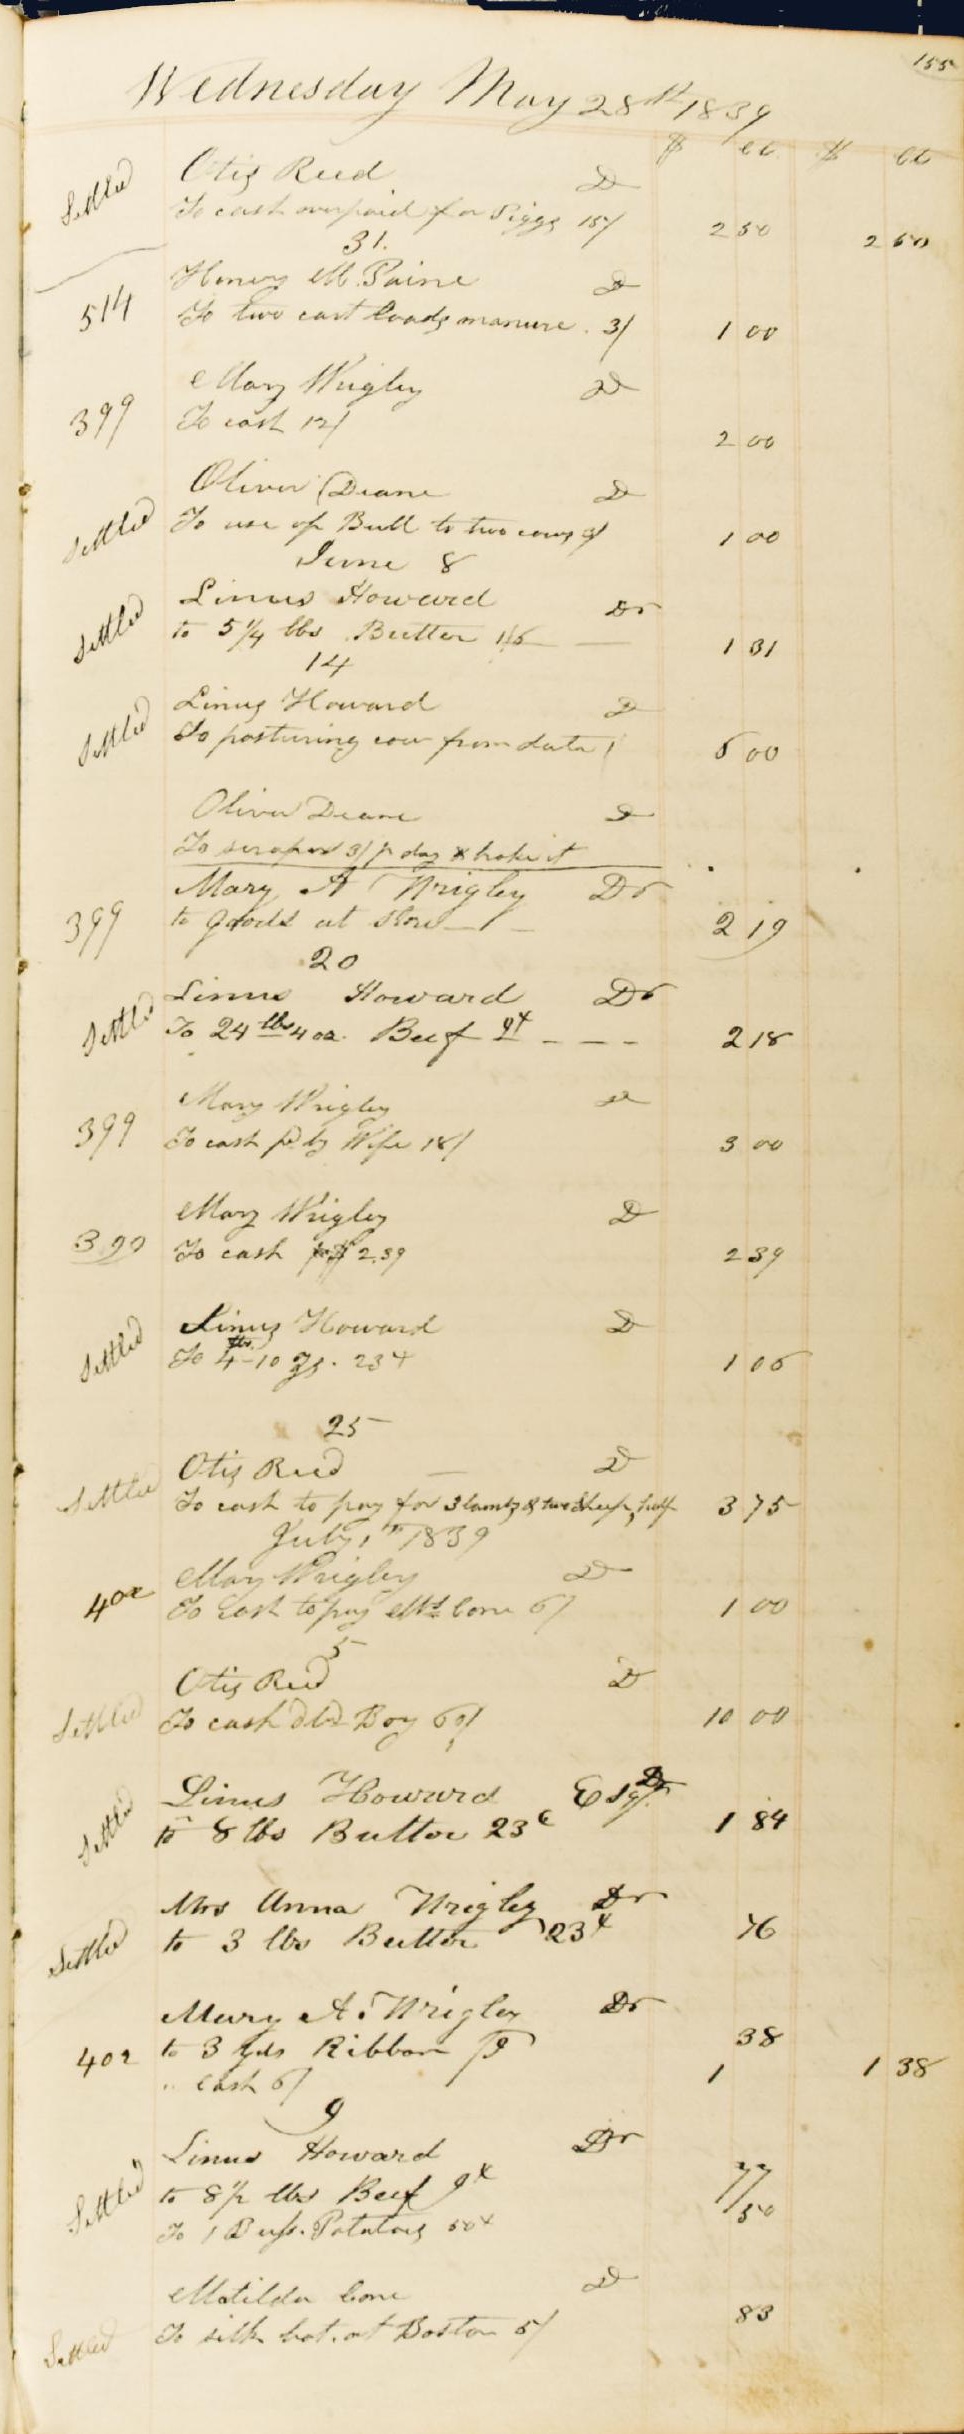 155
Wednesday May 28th 1839
$ ct $ ct
Settled Otis Reed D
To cash overpaid for Piggs 15/ 2 50 2 50
31.
514 Henery M. Paine D
To two cart loads manure. 3/ 1 00
399 Mary Wrigley D
To cash 12/ 2 00
Settled Oliver Deane D
To use of Bull to two cows 1 00
June 8
Settled Linus Howard Dr
to 5 1/4 lbs Butter 1/6 1 31
14
Settled Linus Howard D
To pasturing cow from date 5 00
Oliver Deane D
To scraper 3/ pr day & broke it
399 Mary A Wrigley Dr
to goods at Store 2 19
20
Settled Linus Howard Dr
To 24 lbs 4 oz. Beef 9 2 18
399 Mary Wrigley D
To cash pd by Wife 18/ 3 00
399 Mary Wrigley D
To cash 2.39 2 39
Settled Linus Howard D
To 4-10 23 1 06
25
Settled Otis Reed D
To cash to pay for 3 lambs & two sheep, half 3 75
July 1st 1839
402 Mary Wrigley D
To cash to pay Mtd Cone 6/ 1 00
5
Settled Otis Reed D
To cash dld Boy 60/ 10 00
Settled Linus Howard Esqr Dr
to 8 lbs Butter 23c 1 84
Settled Mrs Anna Wrigley Dr
to 3 lbs Butter 23 76
402 Mary A. Wrigley Dr
to 3 yds Ribbon 38
" Cash 6/ 1 1 38
9
Settled Linus Howard Dr
to 8 1/2 lbs Beef 9 77
To 1 Bush. Potatoes 50 50
Matilda Cone D
Settled To silk hat. at Boston 5/ 83